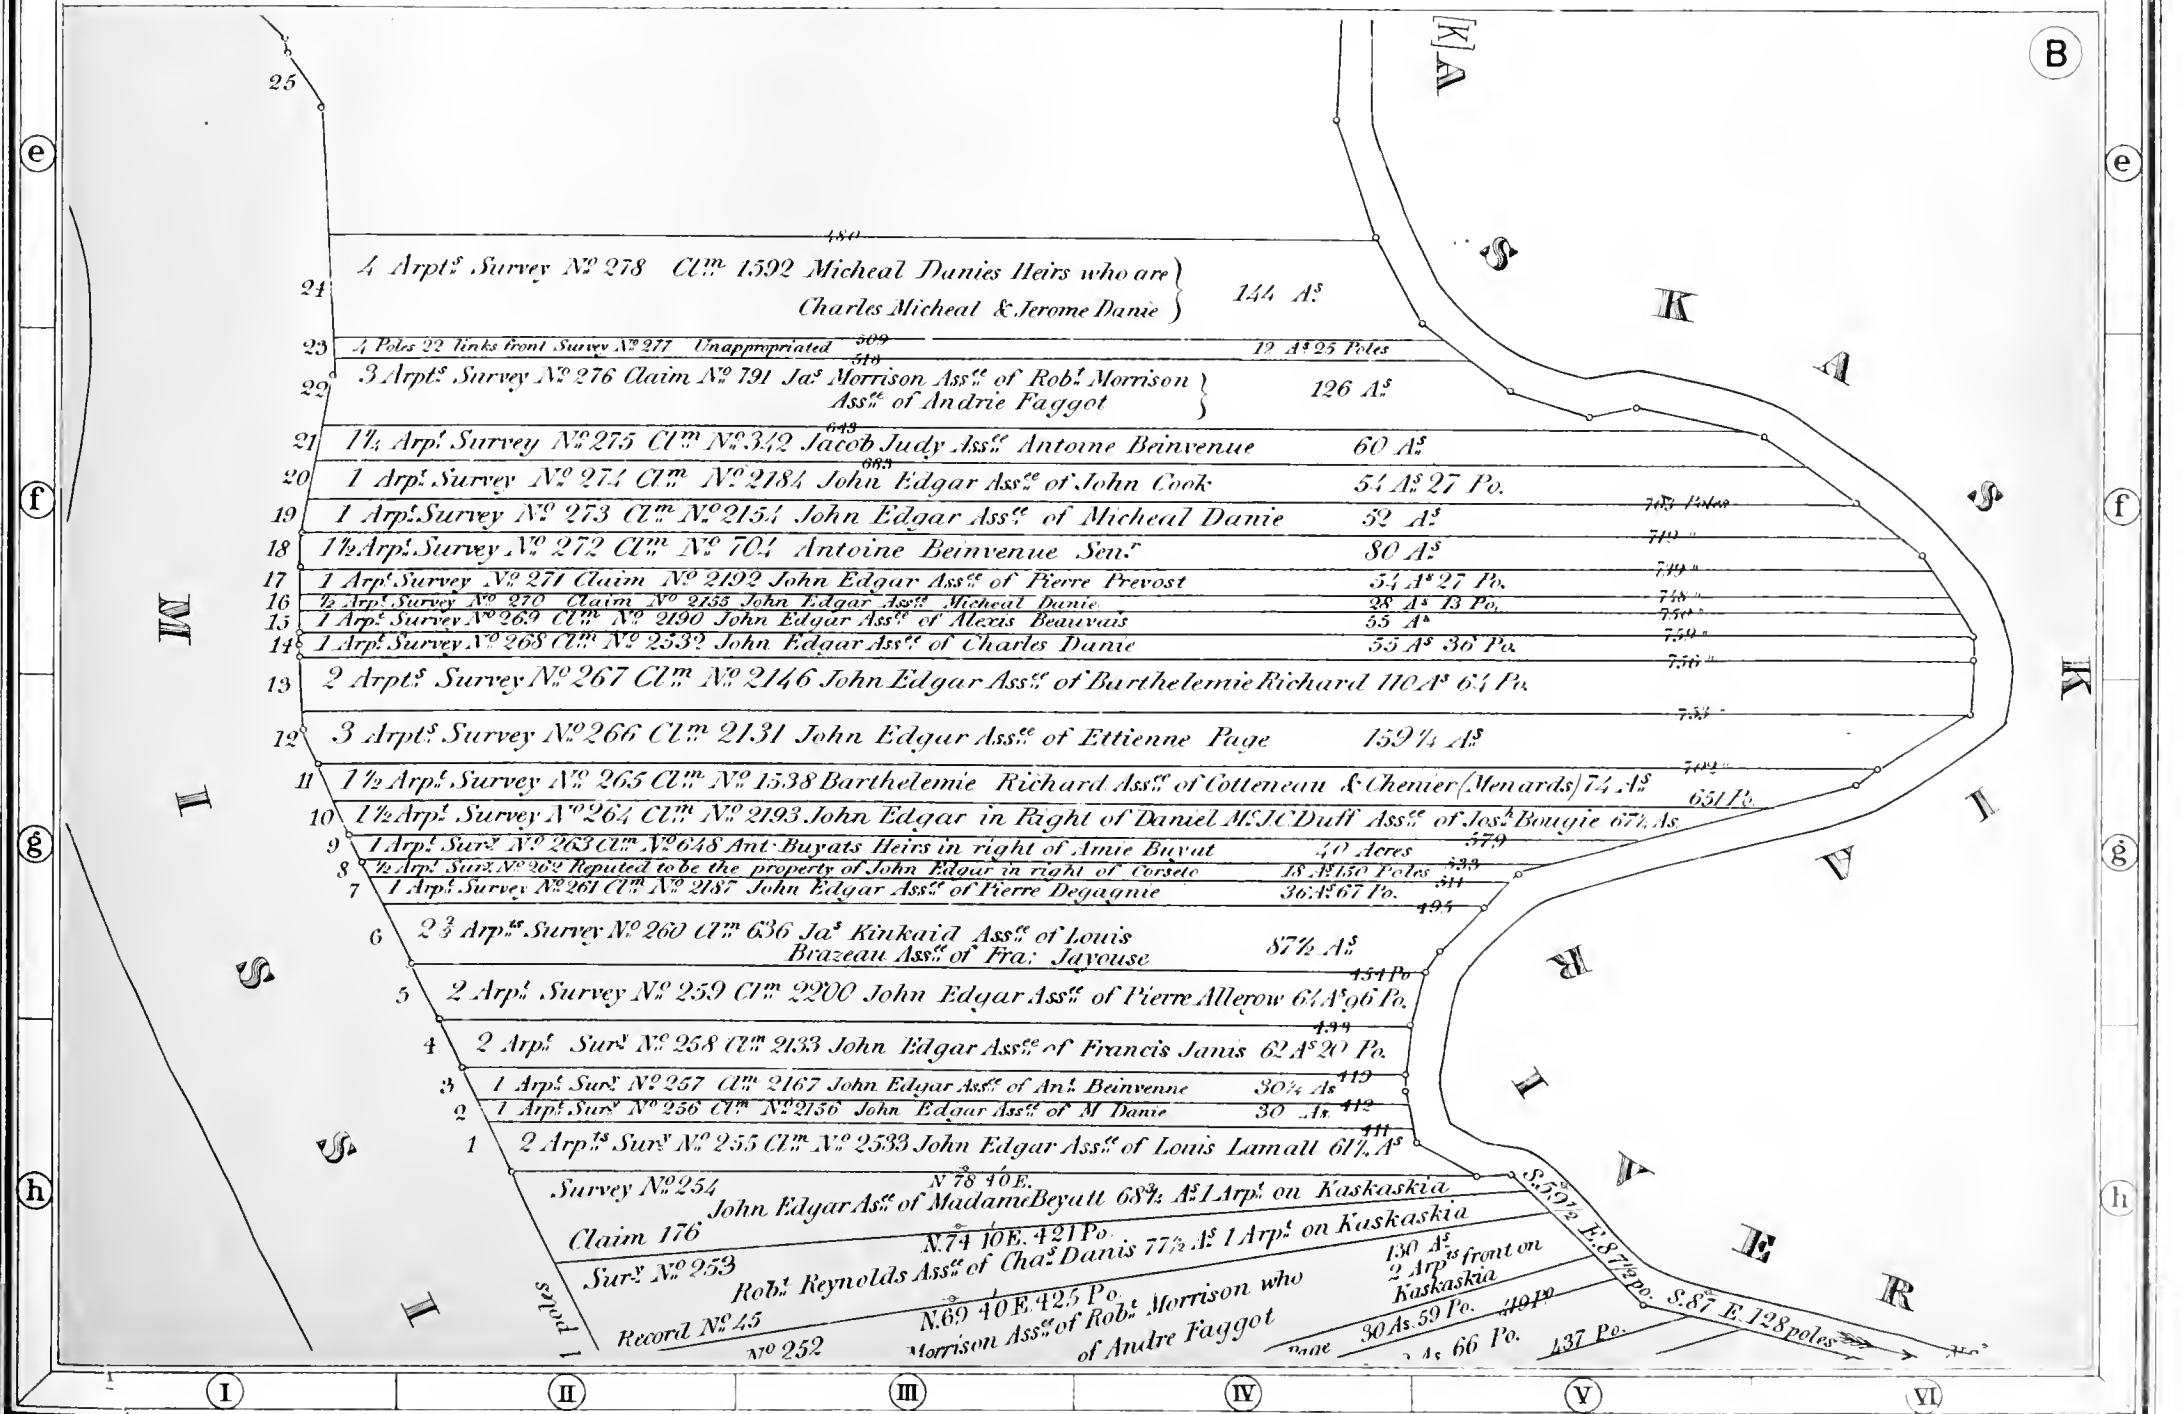 B
[K]A
S
K
A
S
K
I
A
R
I
V
E
R
M
I
S
S
I
e
f
g
h
e
f
g
h
25
480
24
4 Arpts Survey No 278 Clm 1592 Micheal Danies Heirs who are
Charles Micheal & Jerome Danie
144 As
23
4 Poles 22 links front Survey No 277 Unappropriated
509
12 As 25 Poles
516
22
3 Arpts Survey No 276 Claim No 791 Jas Morrison Assee of Robt Morrison
Assee of Andrie Faggot
126 As
643
21
1¼ Arpt Survey No 275 Clm No 342 Jacob Judy Assee Antoine Beinvenue 60 As
683
20
1 Arpt Survey No 274 Clm No 2184 John Edgar Assee of John Cook 54 As 27 Po.
703 Poles
19
1 Arpt Survey No 273 Clm No 2154 John Edgar Assee of Micheal Danie 52 As
719 "
18
1½ Arpt Survey No 272 Clm No 704 Antoine Beinvenue Senr 80 As
739 "
17
1 Arpt Survey No 271 Claim No 2192 John Edgar Assee of Pierre Prevost 54 As 27 Po.
748 "
16
½ Arpt Survey No 270 Claim No 2155 John Edgar Assee Micheal Danie 28 As 13 Po.
750 "
15
1 Arpt Survey No 269 Clm No 2190 John Edgar Assee of Alexis Beauvais 55 As
759 "
14
1 Arpt Survey No 268 Clm No 2532 John Edgar Assee of Charles Danie 55 As 36 Po.
756 "
13
2 Arpts Survey No 267 Clm No 2146 John Edgar Assee of Barthelemie Richard 110 As 64 Po.
753 "
12
3 Arpts Survey No 266 Clm 2131 John Edgar Assee of Ettienne Page 159¼ As
702 "
11
1½ Arpt Survey No 265 Clm No 1538 Barthelemie Richard Assee of Cotteneau & Chenier (Menards) 74 As
651 Po.
10
1½ Arpt Survey No 264 Clm No 2193 John Edgar in Right of Daniel Mc.J.C Duff Assee of Josh Bougie 67½ As.
579
9
1 Arpt Survy No 263 Clm No 648 Ant. Buyats Heirs in right of Amie Buyut 40 Acres
533
8
½ Arpt Survy No 262 Reputed to be the property of John Edgar in right of Corsete 18 As 150 Poles
511
7
1 Arpt Survey No 261 Clm No 2187 John Edgar Assee of Pierre Degagnie 36 As 67 Po.
495
6
2⅔ Arpts Survey No 260 Clm 636 Jas Kinkaid Assee of Louis
Brazeau Assee of Fra: Jayouse
87½ As
454 Po
5
2 Arpt Survey No 259 Clm 2200 John Edgar Assee of Pierre Allerow 64 As 96 Po.
433
4
2 Arpt Survy No 258 Clm 2133 John Edgar Assee of Francis Janis 62 As 20 Po.
419
3
1 Arpt Survy No 257 Clm 2167 John Edgar Assee of Ant. Beinvenne 30¼ As
412
2
1 Arpt Survy No 256 Clm No 2156 John Edgar Assee of M Danie 30 As.
411
1
2 Arpts Survy No 255 Clm No 2533 John Edgar Assee of Louis Lamall 61½ As
N 78° 40' E.
Survey No 254
John Edgar Assee of Madame Beyatt 68¾ As 1 Arpt on Kaskaskia
Claim 176
N.74° 10' E. 421 Po.
Survy No 253
Robt Reynolds Assee of Chas Danis 77½ As 1 Arpt on Kaskaskia
Record No 45
N.69° 40' E. 425 Po.
No 252
Morrison Assee of Robt Morrison who
of Andre Faggot
130 As
2 Arpts front on
Kaskaskia
30 As. 59 Po.
419 Po
Page
As 66 Po.
437 Po.
S.59½° E.87½ po.
S.87° E. 128 poles
1 poles
I
II
III
IV
V
VI